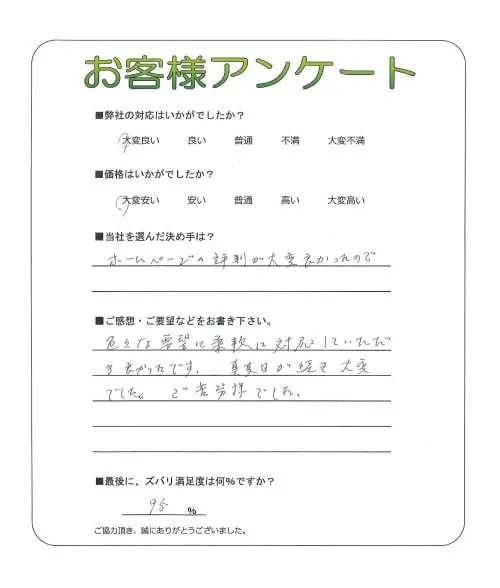 お客様アンケート
■弊社の対応はいかがでしたか？
大変良い 良い 普通 不満 大変不満
■価格はいかがでしたか？
大変安い 安い 普通 高い 大変高い
■当社を選んだ決め手は？
ホームページの評判が大変良かったので
■ご感想・ご要望などをお書き下さい。
色々な要望に柔軟に対応していただ
き良かったです。真夏日が続き大変
でした。ご苦労様でした。
■最後に、ズバリ満足度は何%ですか？
95 %
ご協力頂き、誠にありがとうございました。